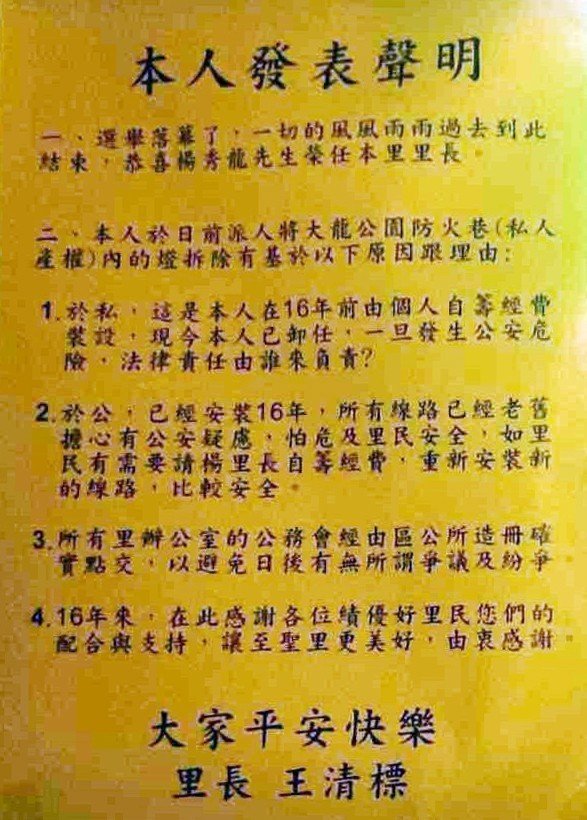 本人發表聲明
一、選舉落幕了，一切的風風雨雨過去到此
結束，恭喜楊秀龍先生榮任本里里長。
二、本人於日前派人將大龍公園防火巷(私人
產權)內的燈拆除有基於以下原因跟理由:
1.於私，這是本人在16年前由個人自籌經費
裝設，現今本人已卸任，一旦發生公安危
險，法律責任由誰來負責?
2.於公，已經安裝16年，所有線路已經老舊
擔心有公安疑慮，怕危及里民安全，如里
民有需要請楊里長自籌經費，重新安裝新
的線路，比較安全。
3.所有里辦公室的公務會經由區公所造冊確
實點交，以避免日後有無所謂爭議及紛爭
4.16年來，在此感謝各位績優好里民您們的
配合與支持，讓至聖里更美好，由衷感謝。
大家平安快樂
里長 王清標